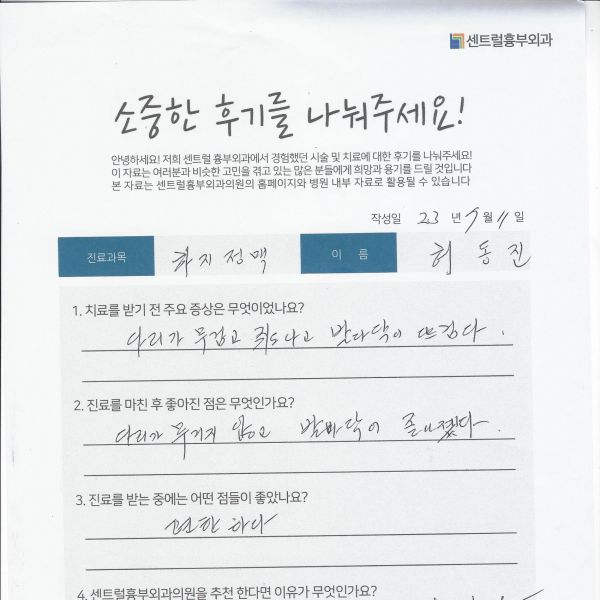 센트럴흉부외과
소중한 후기를 나눠주세요!
안녕하세요! 저희 센트럴 흉부외과에서 경험했던 시술 및 치료에 대한 후기를 나눠주세요!
이 자료는 여러분과 비슷한 고민을 겪고 있는 많은 분들에게 희망과 용기를 드릴 것입니다
본 자료는 센트럴흉부외과의원의 홈페이지와 병원 내부 자료로 활용될 수 있습니다
작성일 23 년 9 월 11 일
진료과목 하지정맥 이 름 허동진
1. 치료를 받기 전 주요 증상은 무엇이었나요?
다리가 무겁고 쥐도나고 발다닥이 뜨겁다.
2. 진료를 마친 후 좋아진 점은 무엇인가요?
다리가 무거지 않고 발바닥이
3. 진료를 받는 중에는 어떤 점들이 좋았나요?
편한하다
4. 센트럴흉부외과의원을 추천 한다면 이유가 무엇인가요?